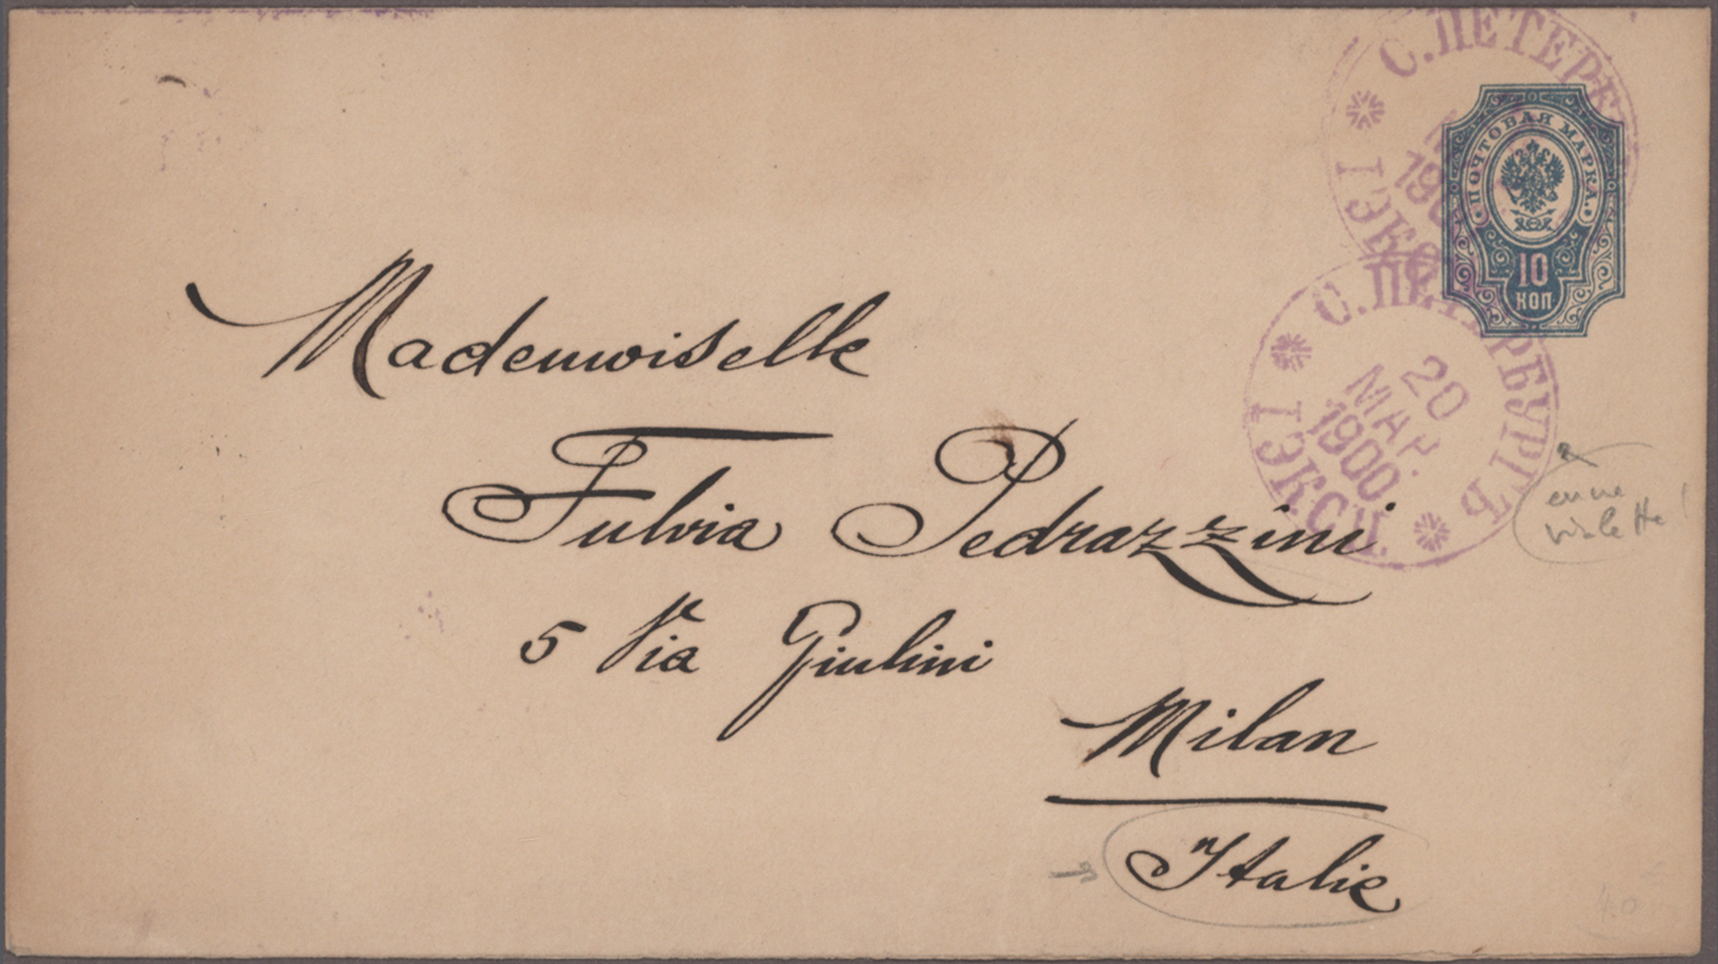 С.ПЕТЕРБ
190
1 ЭКС
ПОЧТОВАЯ МАРКА.
10
КОП
С.ПЕТЕРБУРГЪ
20
МАР.
1900
1 ЭКСП.
Mademoiselle
Fulvia Pedrazzini
violette!
5 Via Giulini
Milan
Italie